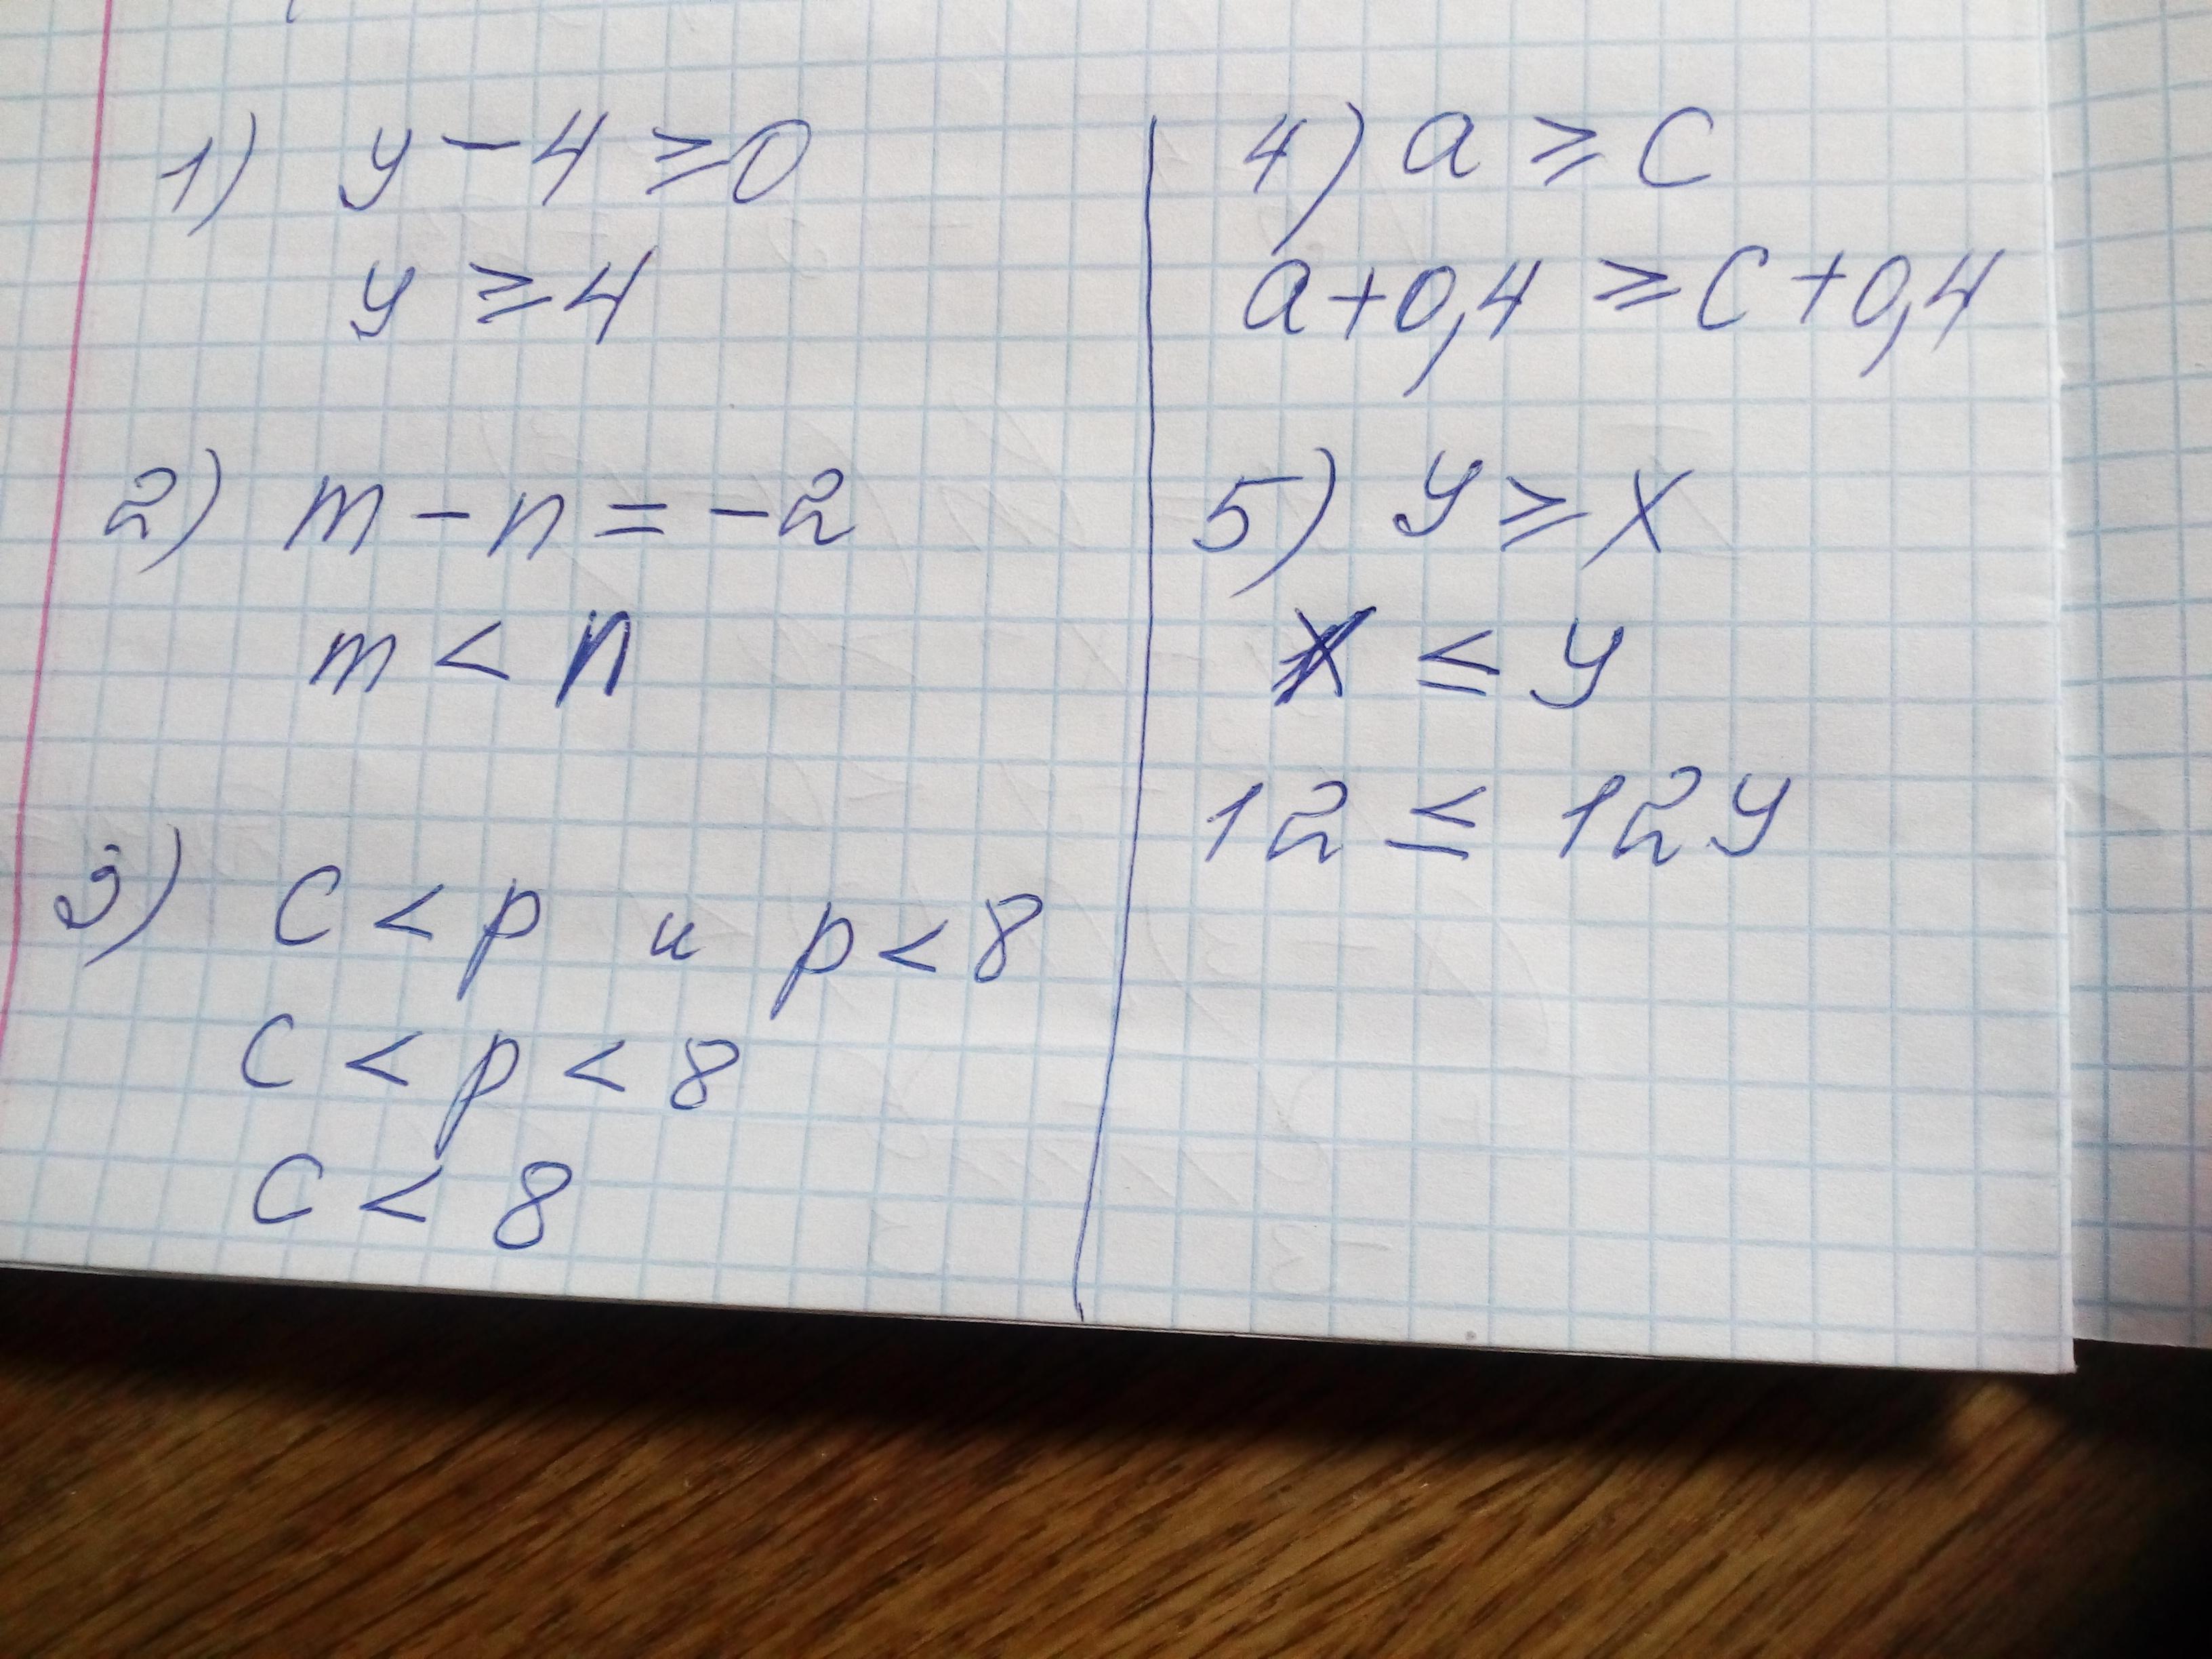 1) y − 4 ⩾ 0
y ⩾ 4
2) m − n = −2
m < n
3) c < p и p < 8
c < p < 8
c < 8
4) a ⩾ c
a + 0,4 ⩾ c + 0,4
5) y ⩾ x
x ≤ y
12 ≤ 12y